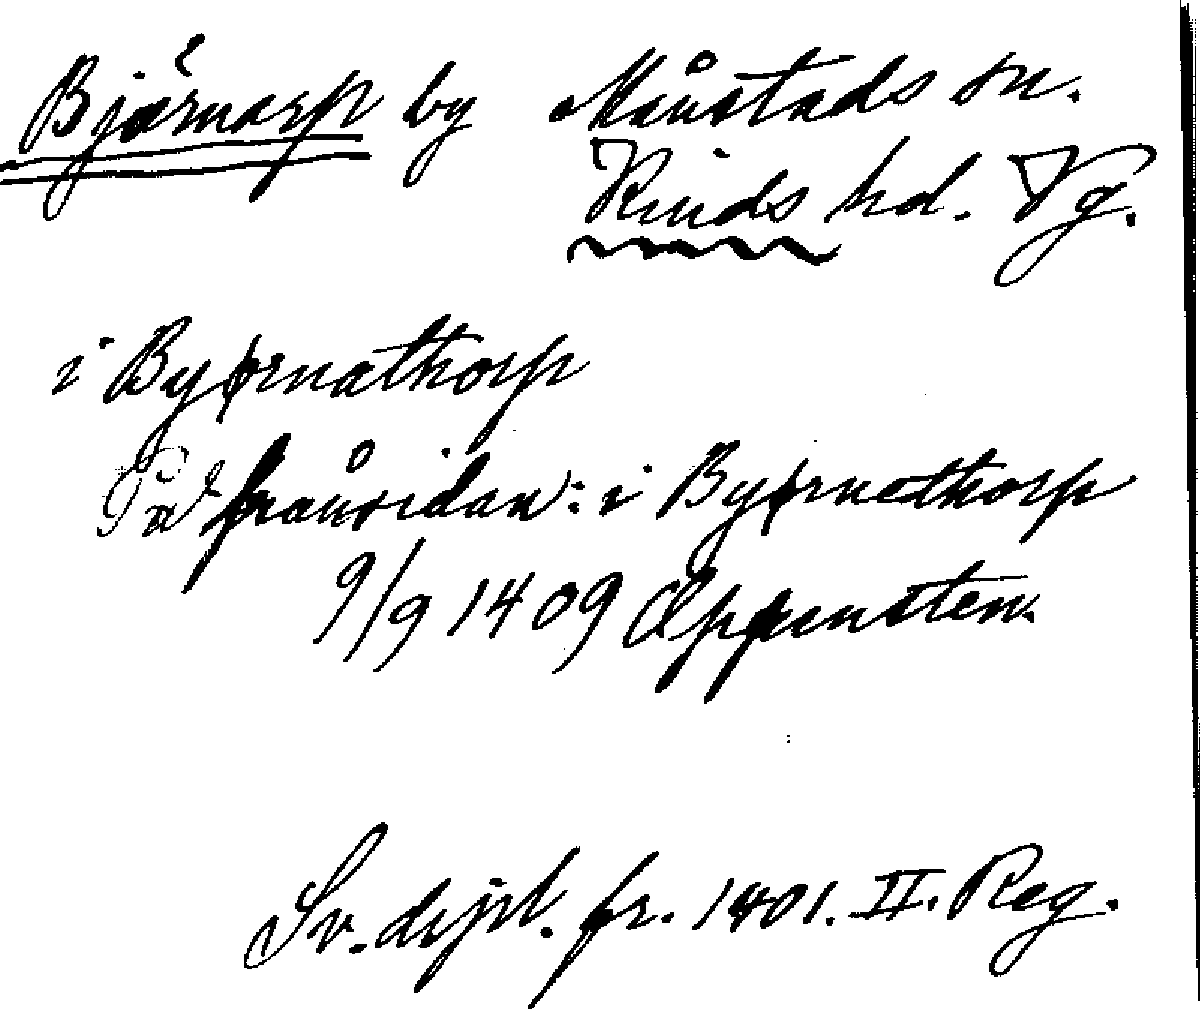 Bjärnarp by Månstads sn.
Kinds hd. Vg.
i Byørnathorp
På frånsidan: i Byørnathorp
9/9 1409 Øppensten.
Sv. dipl. fr. 1401. II. Reg.